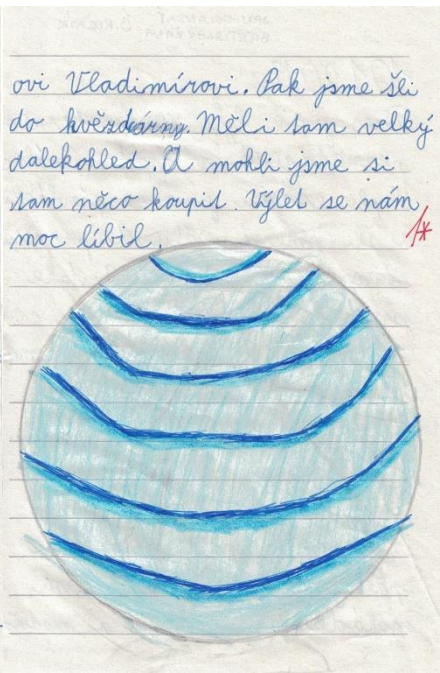 ovi Vladimírovi. Pak jsme šli
do hvězdárny. Měli tam velký
dalekohled. A mohli jsme si
tam něco koupit. Výlet se nám
moc líbil.
1*